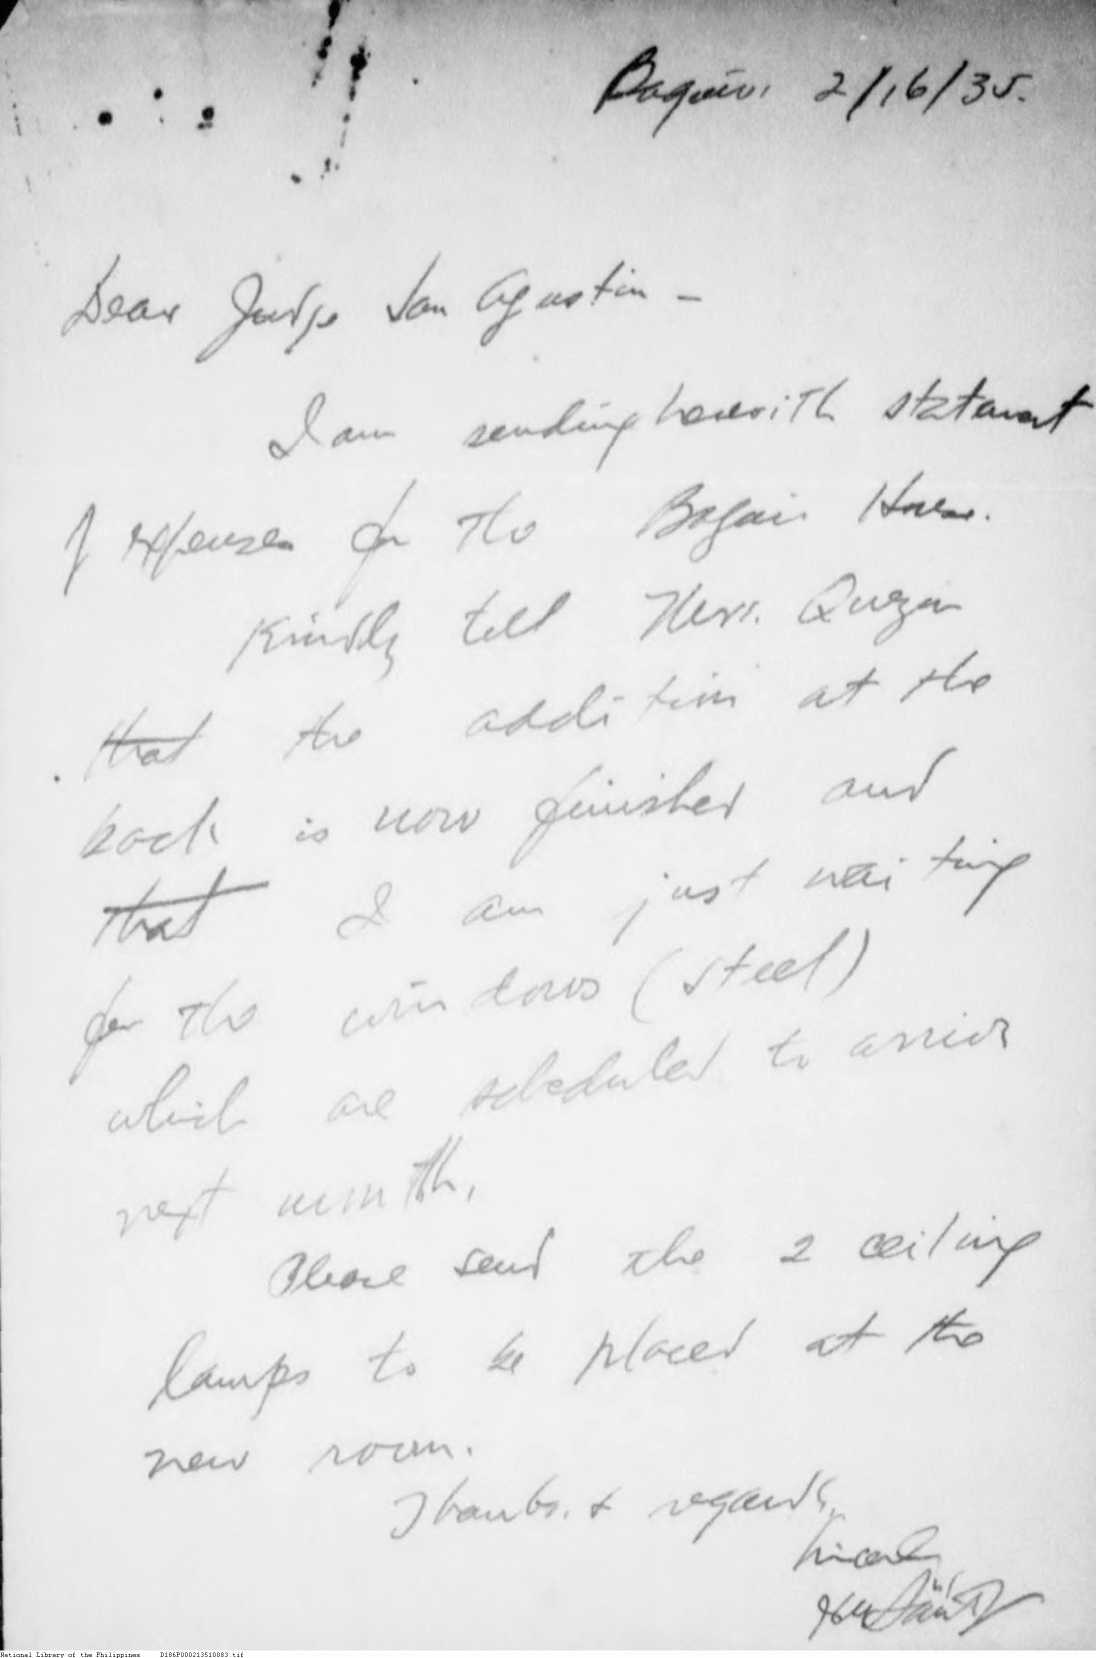 Baguio, 2/16/35.
Dear Judge San Agustin -
I am sending herewith statement
of expenses for the Baguio House.
Kindly tell Mrs. Quezon
that the addition at the
back is now finished and
that I am just waiting
for the windows (steel)
which are scheduled to arrive
next month.
Please send the 2 ceiling
lamps to be placed at the
new room.
Thanks. & regards,
Sincerely
National Library of the Philippines D186P000213510883.tif